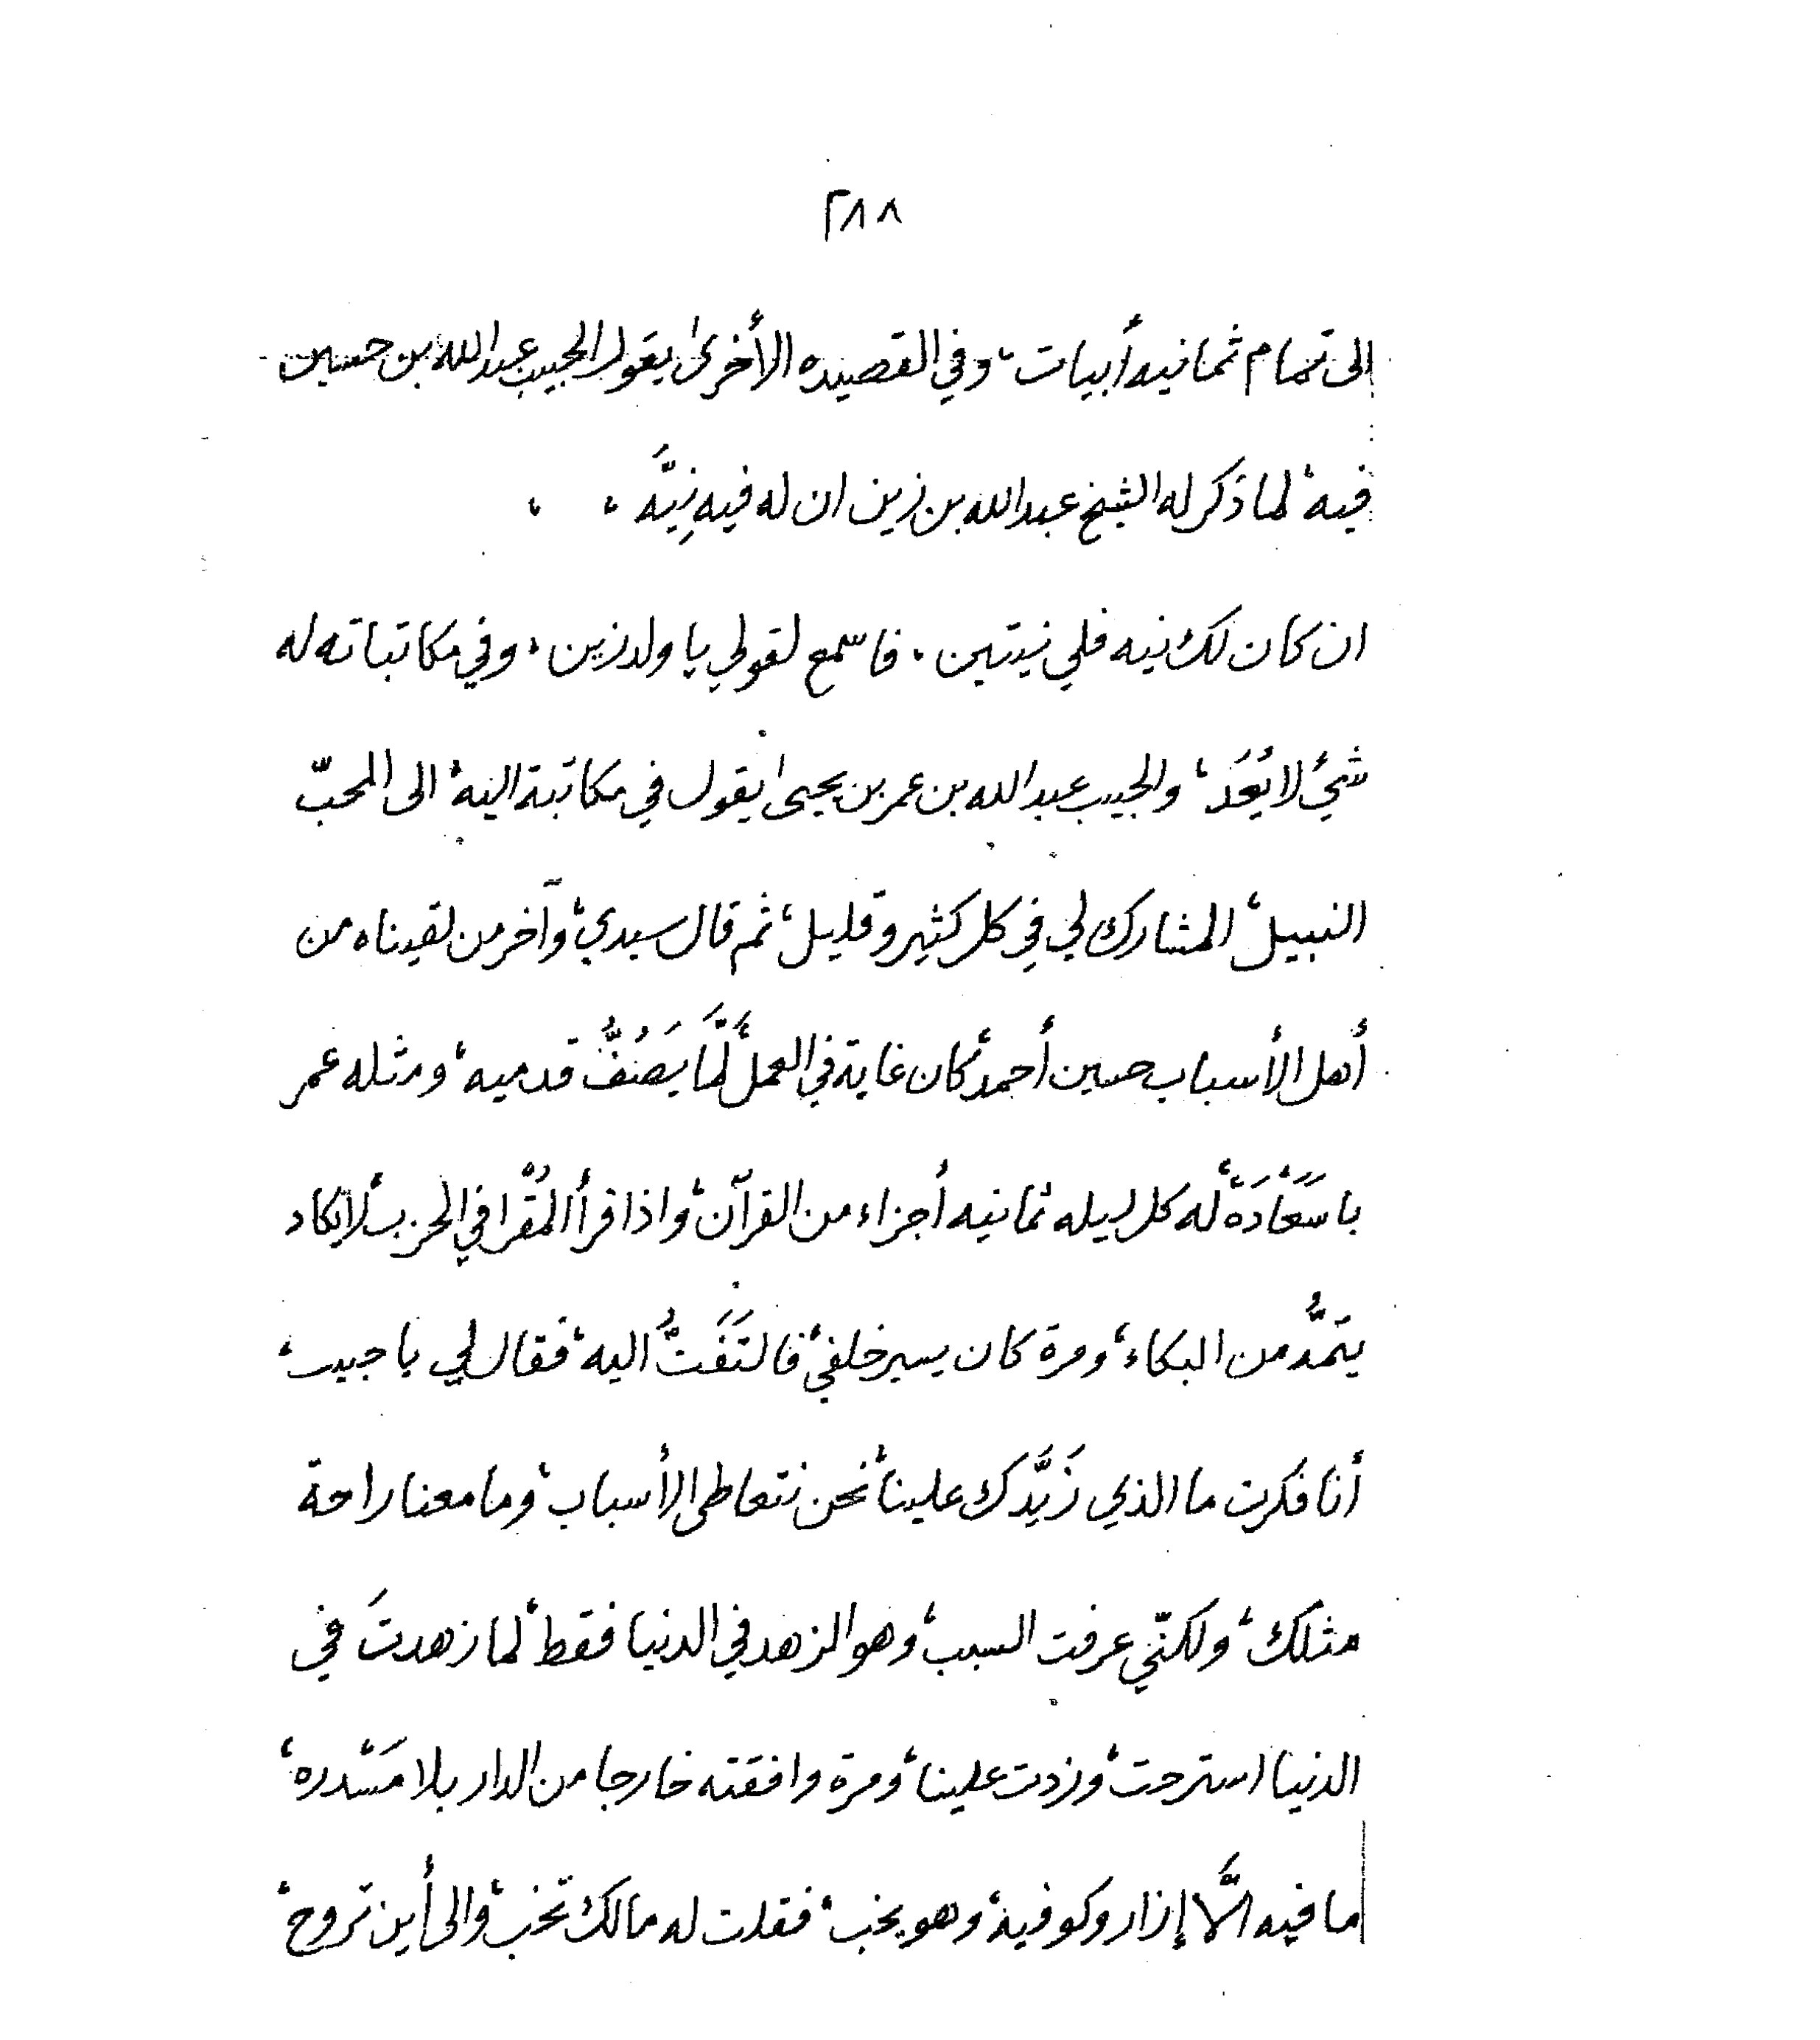 ٢٨٨
الى تمام ثمانيه أبيات، وفي القصيده الأخرى يقول الحبيب عبدالله بن حسين
فيه، لما ذكر له الشيخ عبدالله بن زين ان له فيه نِيَّه ، ،
ان كان لك نيه فلي نيتين ، فاسمع لقولي يا ولد زين ، وفي مكاتباته له
شئ لا يُعَد، والحبيب عبدالله بن عمر بن يحيى يقول في مكاتبة اليه، الى المحبّ
النبيل، المشارك لي في كل كثير وقليل، ثم قال سيدي، وآخر من لقيناه من
أهل الأسباب حسين أحمد، كان غاية في العمل، لَمَّا يَصَُفُّ قدميه، ومثله عمر
باسَعَادَهْ، له كل ليله ثمانيه أجزاء من القرآن، واذا قرأ المُقْرا في الحزب، لا يكاد
يتمُّ من البكاء، ومرة كان يسير خلفي، فالتَفَتُّ اليه، فقال لي يا حبيب،
أنا فكرت ما الذي زَيَّدك علينا، نحن نتعاطى الأسباب، وما معنا راحة
مثلك، ولكنّي عرفت السبب، وهو الزهد في الدنيا فقط، لما زهدتَ في
الدنيا استرحت، وزدت علينا، ومرة وافقته خارجا من الدار بلا مَسْدره،
ما فيه الَّا إزار وكوفية، وهو يخب، فقلت له مالك تخب، والى أين تروح،